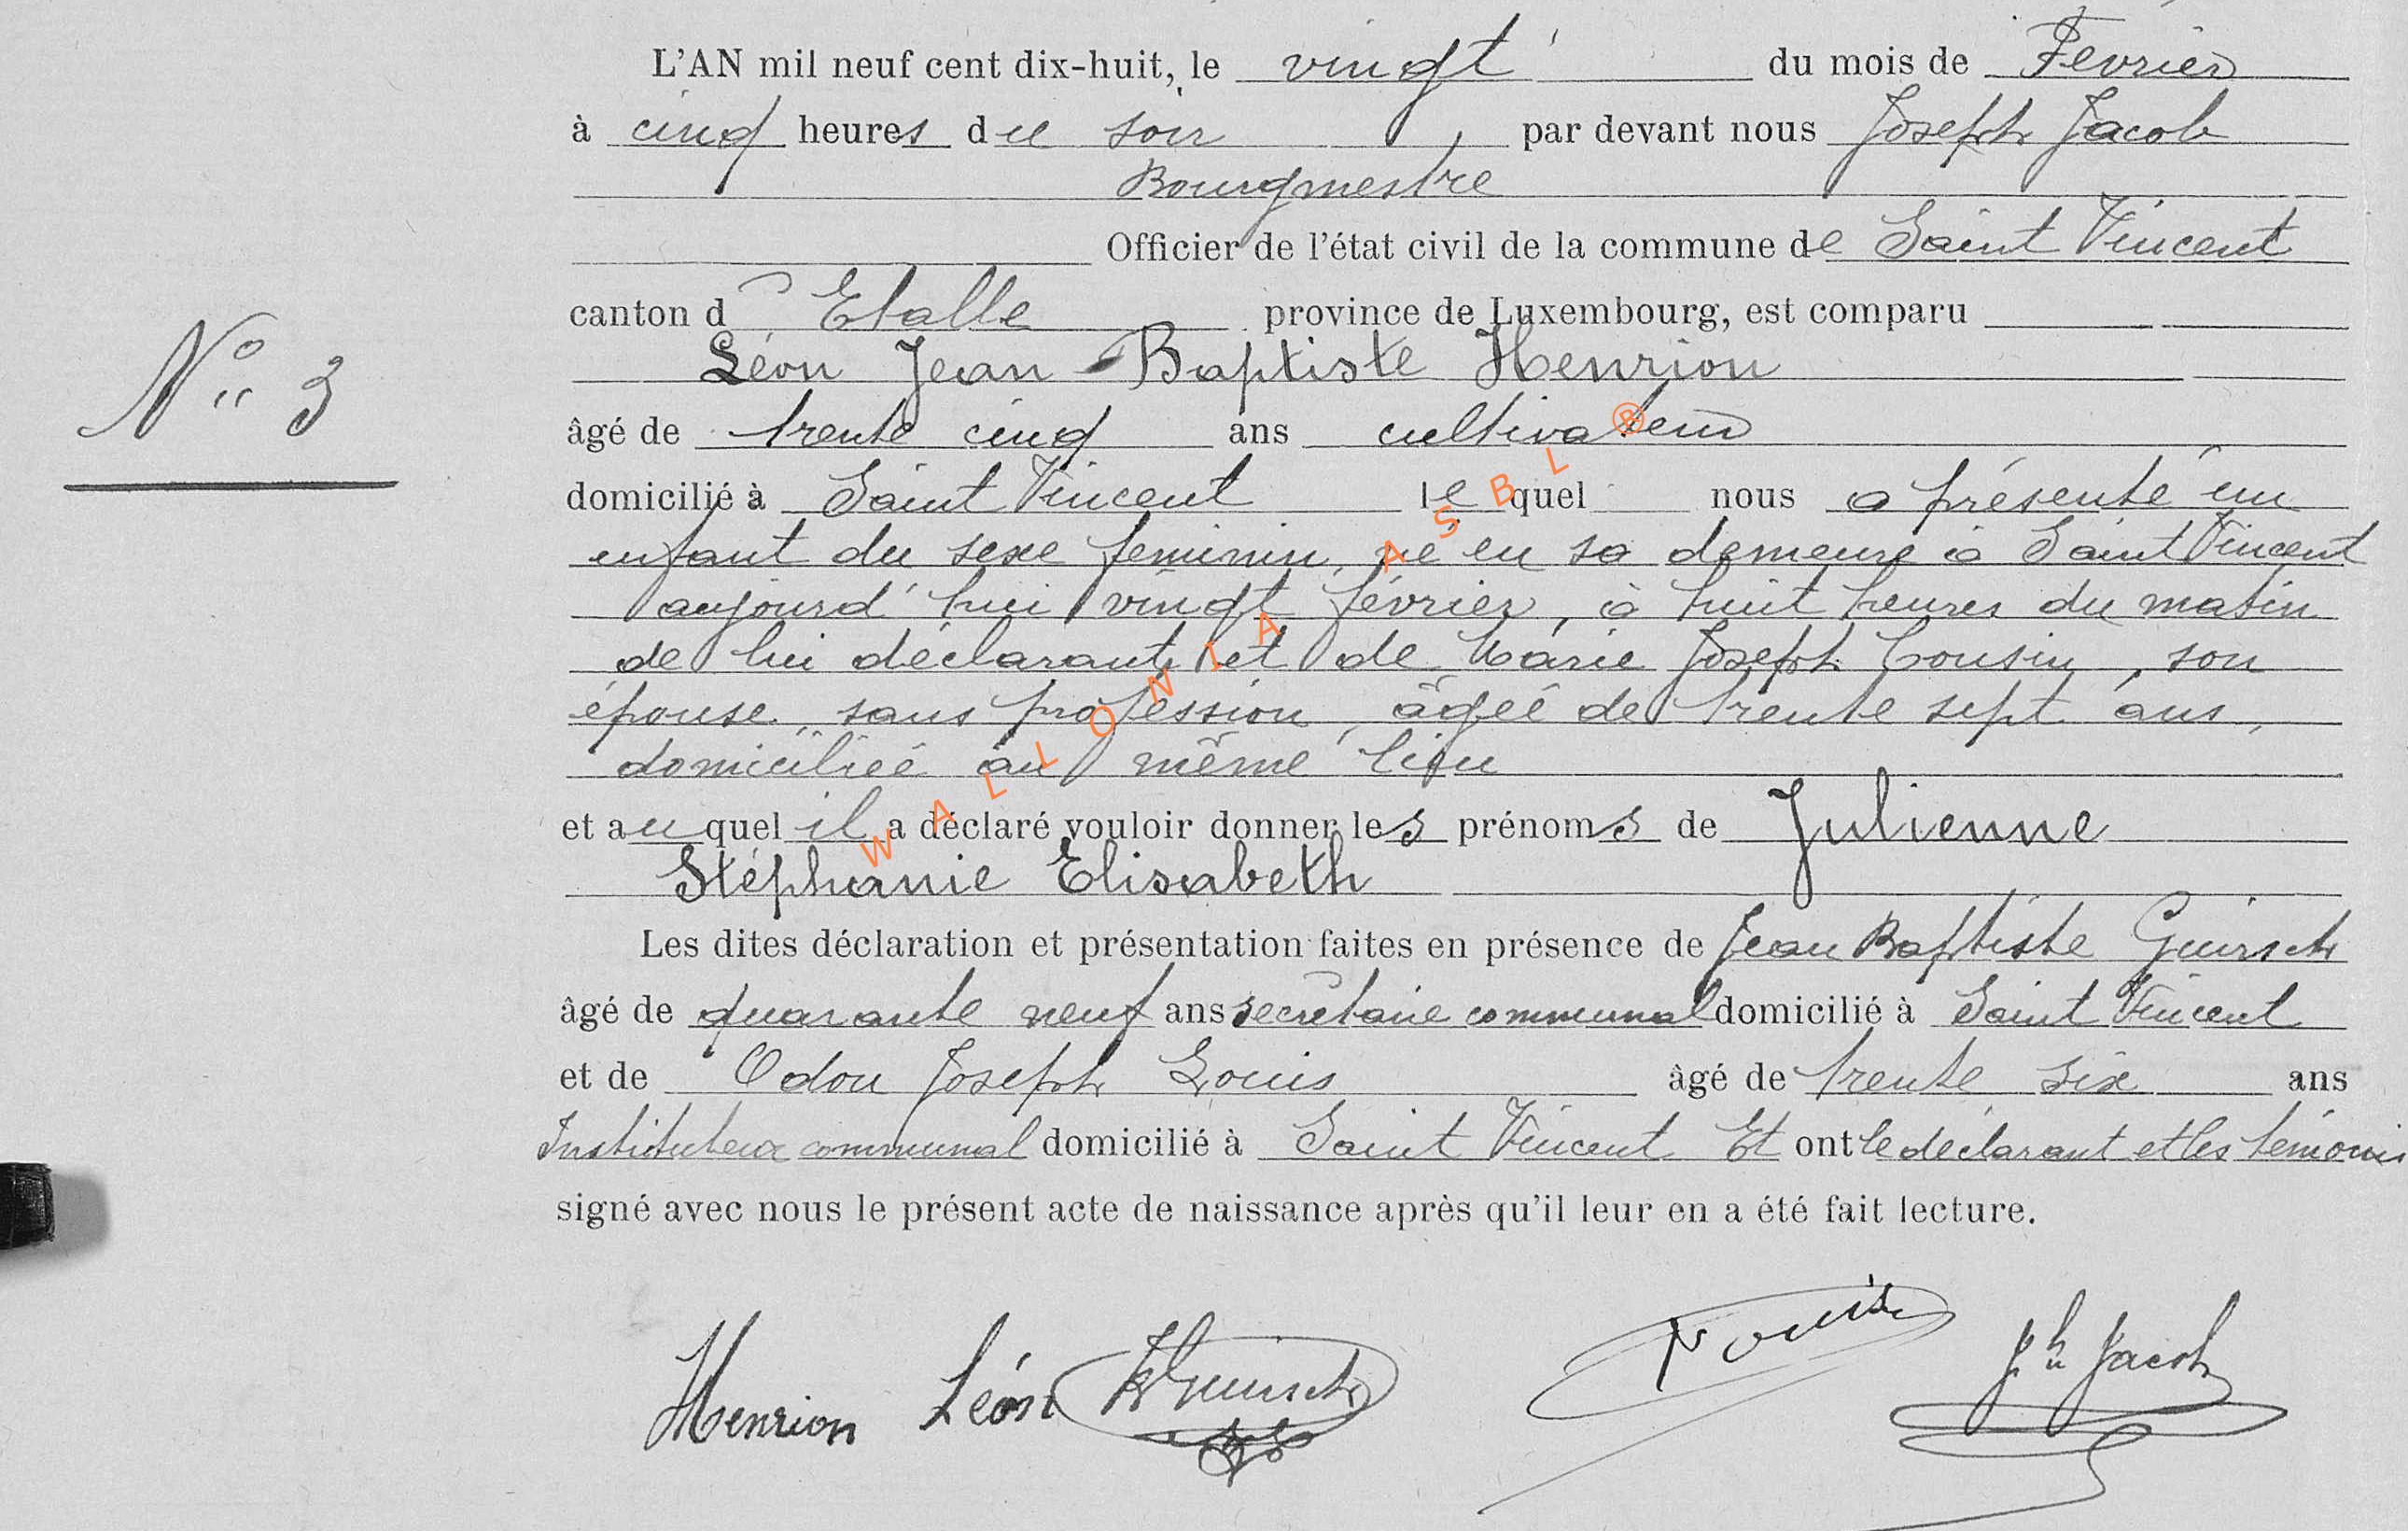 L'AN mil neuf cent dix-huit, le vingt du mois de Février
à cinq heures du soir par devant nous Joseph Jacob
Bourgmestre
Officier de l'état civil de la commune de Saint Vincent
canton d'Etalle province de Luxembourg, est comparu
Léon Jean-Baptiste Henrion
N° 3
âgé de trente cinq ans cultivateur
domicilié à Saint Vincent lequel nous a présenté un
enfant du sexe feminin, né en sa demeure à Saint Vincent
aujourd'hui vingt février, à huit heures du matin
de lui déclarant et de Marie Joseph Cousin, son
épouse, sans profession, âgée de trente sept ans,
domiciliée au même lieu
et auquel il a déclaré vouloir donner les prénoms de Julienne
Stéphanie Elisabeth
Les dites déclaration et présentation faites en présence de Jean Baptiste Guirsch
âgé de quarante neuf ans secrétaire communal domicilié à Saint Vincent
et de Odon Joseph Louis âgé de trente six ans
Instituteur communal domicilié à Saint Vincent Et ont le déclarant et les témoins
signé avec nous le présent acte de naissance après qu'il leur en a été fait lecture.
Henrion Léon Guirsch Louis Jh Jacob
WALLONIA ASBL ®